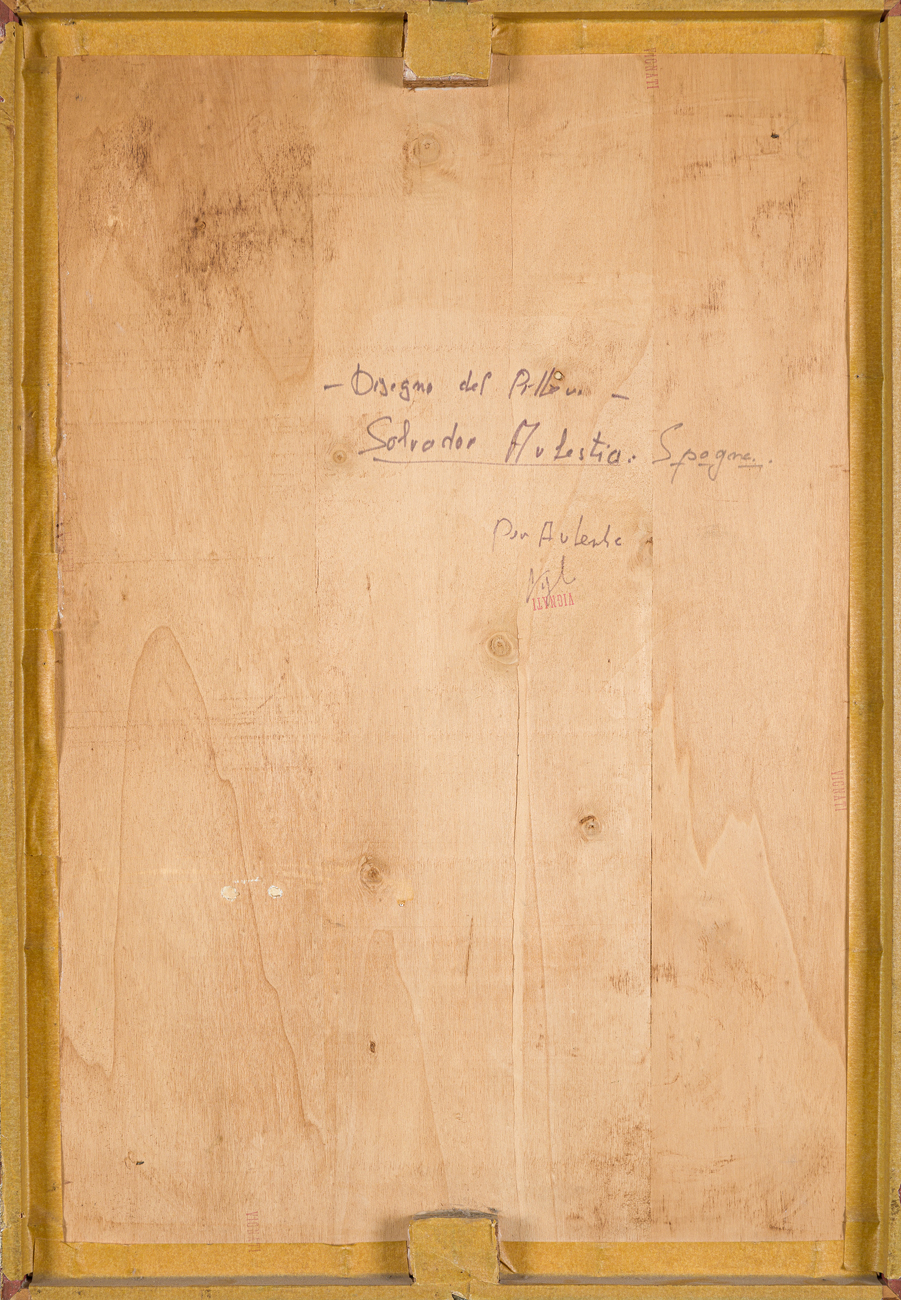 VIGNATI
- Disegno del Pittore -
Salvador Aulestia. Spagna.
Per Autentic
VIGNATI
VIGNATI
VIGNATI